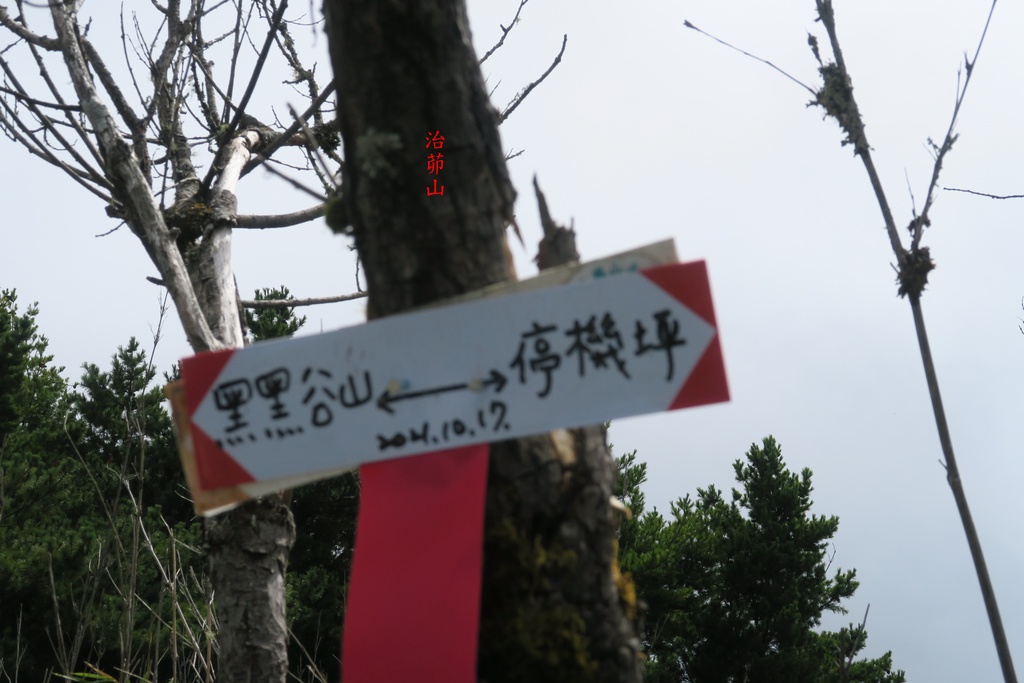 治茆山
黑黑谷山 ←→ 停機坪
2021.10.17.